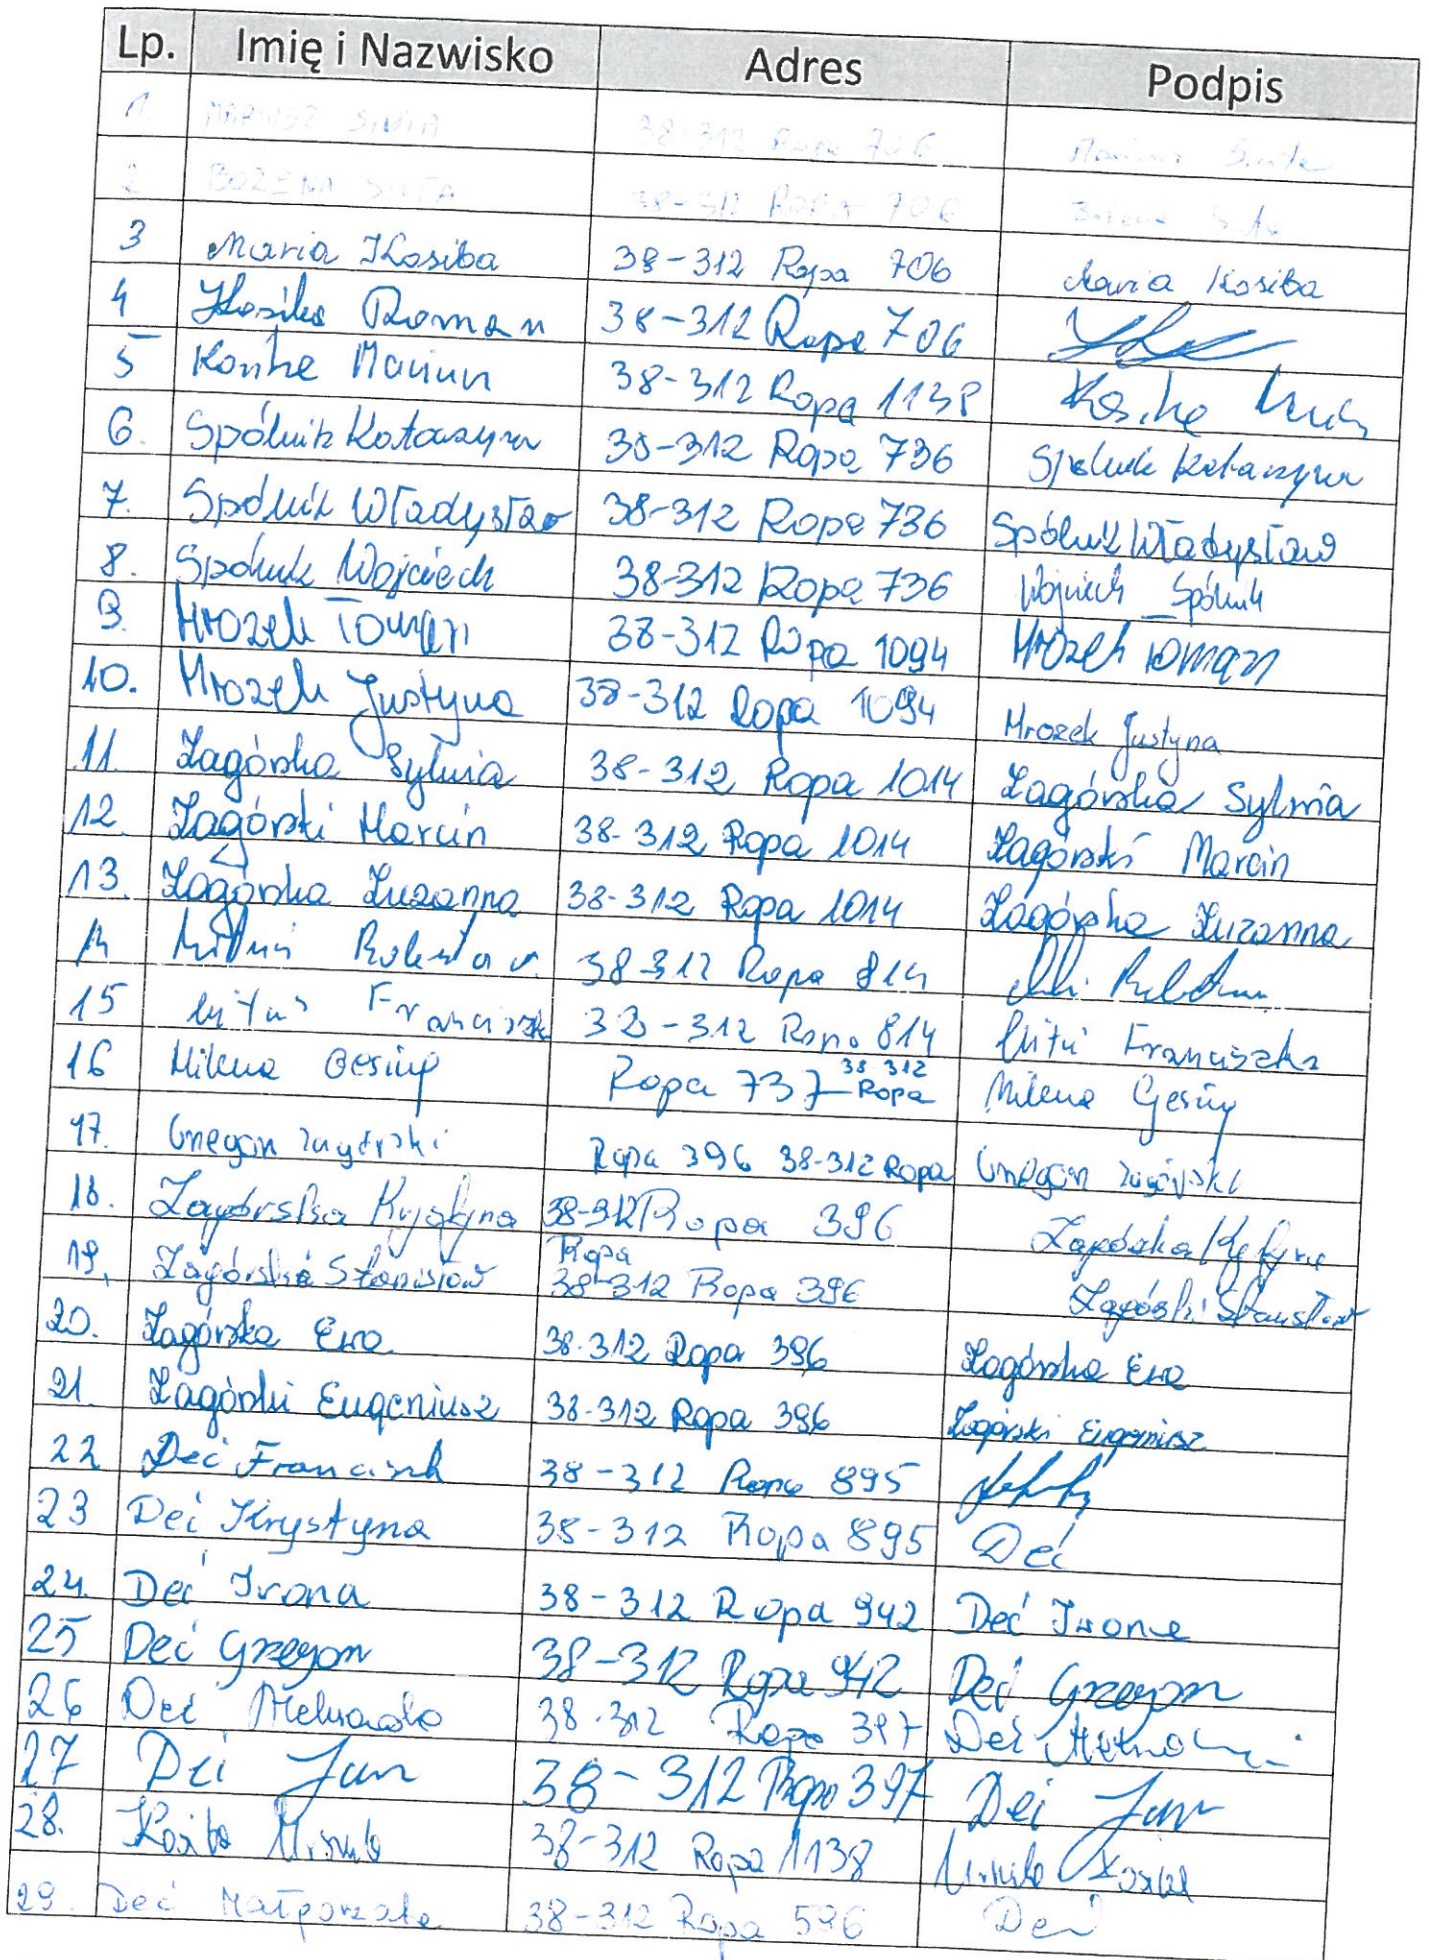 Lp. Imię i Nazwisko Adres Podpis
1. MARIUSZ 38-312 Ropa 706
2 BOŻENA 38-312 ROPA 706
3 Maria Kosiba 38-312 Ropa 706 Maria Kosiba
4 Kosiba Roman 38-312 Ropa 706
5 38-312 Ropa 1138
6. Spólnik Katarzyna 38-312 Ropa 736 Spólnik Katarzyna
7. Spólnik Władysław 38-312 Ropa 736 Spólnik Władysław
8. Spólnik Wojciech 38-312 Ropa 736 Wojciech Spólnik
9. Mrozek Roman 38-312 Ropa 1094 Mrozek Roman
10. Mrozek Justyna 38-312 Ropa 1094 Mrozek Justyna
11. Zagórska Sylwia 38-312 Ropa 1014 Zagórska Sylwia
12. Zagórski Marcin 38-312 Ropa 1014 Zagórski Marcin
13. Zagórska Zuzanna 38-312 Ropa 1014 Zagórska Zuzanna
14 38-312 Ropa 814
15 Franciszka 38-312 Ropa 814 Franciszka
16 Milena 38 312
Ropa 737 Ropa Milena
17. Grzegorz Zagórski Ropa 396 38-312 Ropa Grzegorz Zagórski
18. Zagórska Krystyna 38-312 Ropa 396 Zagórska
19. Zagórski Stanisław Ropa
38-312 Ropa 396 Zagórski Stanisław
20. Zagórska Ewa 38-312 Ropa 396 Zagórska Ewa
21. Zagórski Eugeniusz 38-312 Ropa 396 Zagórski Eugeniusz
22 Deć Franciszek 38-312 Ropa 895
23 Deć Krystyna 38-312 Ropa 895 Deć
24. Deć Iwona 38-312 Ropa 942 Deć Iwona
25 Deć Grzegorz 38-312 Ropa 942 Deć Grzegorz
26 Deć 38-312 Ropa 397 Deć
27 Deć Jan 38-312 Ropa 397 Deć Jan
28. 38-312 Ropa 1138
29. Deć Małgorzata 38-312 Ropa 596 Deć